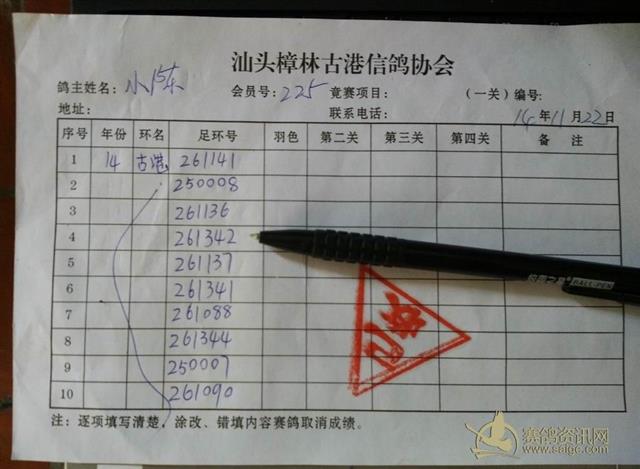 汕头樟林古港信鸽协会
鸽主姓名: 小陈 会员号: 225 竞赛项目: (一关) 编号:
地址: 联系电话: 14 年 11 月 22 日
序号 年份 环名 足环号 羽色 第二关 第三关 第四关 备 注
1 14 古港 261141
2 250008
3 261136
4 261342
5 261137
6 261341
7 261088
8 261344
9 250007
10 261090
注: 逐项填写清楚, 涂改、错填内容赛鸽取消成绩。
BALL-PEN
赛鸽资讯网
www.saige.com